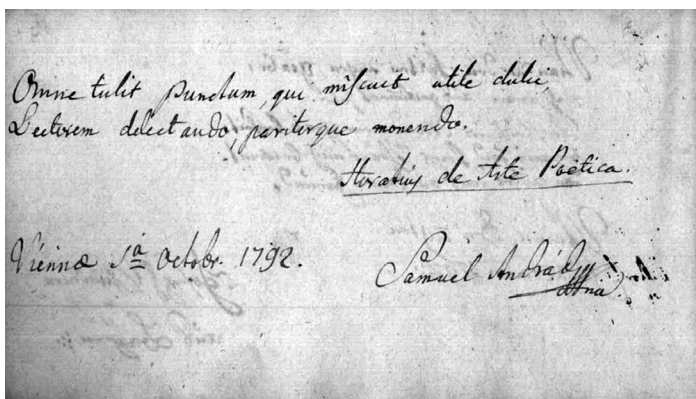 Omne tulit punctum, qui miscuit utile dulci,
Lectorem delectando, pariterque monendo.
Horatius de Arte Poëtica.
Viennæ 1a Octobr. 1792.
Samuel András